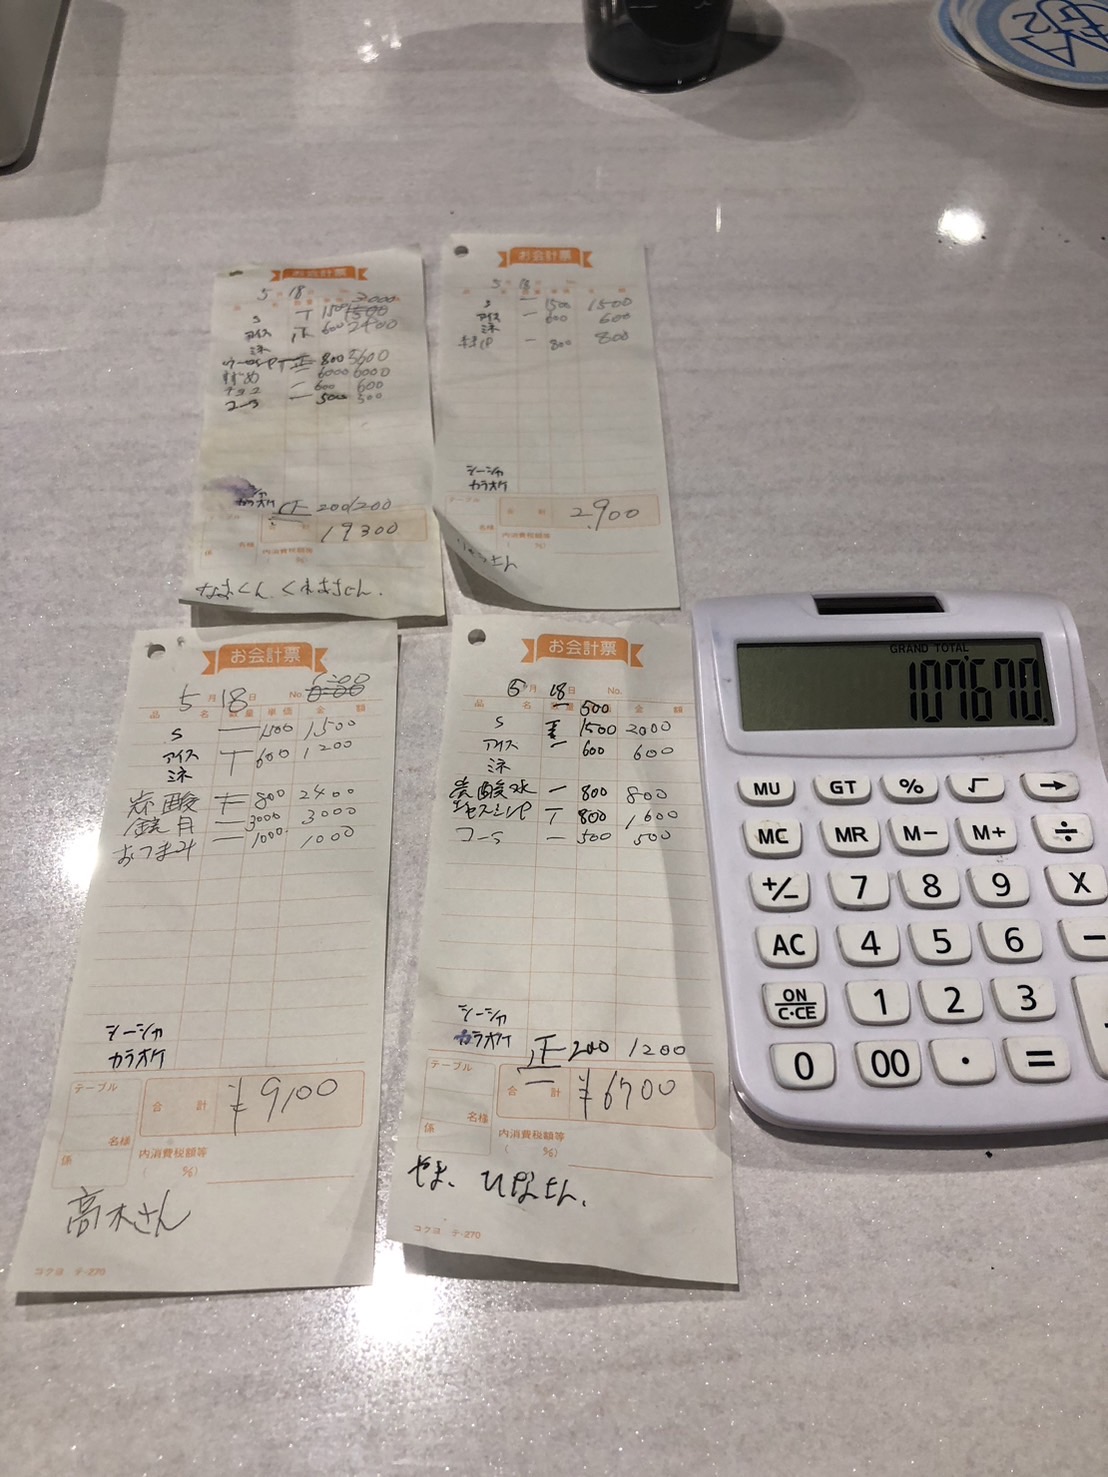 お会計票
5 18
3000
S 1500 1500
アイス 600 2400
ミネ
800 5600
6000 6000
600 600
コーラ 500 500
カラオケ 正一 200 1200
19300
名様
係
内消費税額等
( %)
お会計票
5 18
S 一 1500 1500
アイス 一 600 600
ミネ
一 800 800
シーシャ
カラオケ
テーブル
合 計 2,900
名様
内消費税額等
( %)
お会計票
5月18日 No.
品 名 数量 単価 金 額
S 一 1500 1,500
アイス T 600 1200
ミネ
炭酸 下 800 2400
鏡月 一 3000 3000
おつまみ 一 1000 1000
シーシャ
カラオケ
テーブル
合 計 ¥9,100
名様
係
内消費税額等
( %)
高木さん
コクヨ テ-270
お会計票
5月18日 No.
品 名 数量 単価 金 額
一 500
S 1500 2000
アイス 一 600 600
ミネ
炭酸水 一 800 800
T 800 1,600
一 500 500
シーシャ
カラオケ 正一 200 1200
テーブル
合 計 ¥6700
名様
係
内消費税額等
( %)
やま、ひなさん。
コクヨ テ-270
GRAND TOTAL
107'670.
MU GT % √ →
MC MR M− M+ ÷
+/− 7 8 9 X
AC 4 5 6 −
ON
C·CE 1 2 3
0 00 · =